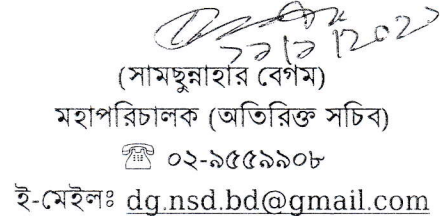 (সামছুন্নাহার বেগম)
মহাপরিচালক (অতিরিক্ত সচিব)
☏ ০২-৯৫৫৯৯০৮
ই-মেইলঃ dg.nsd.bd@gmail.com